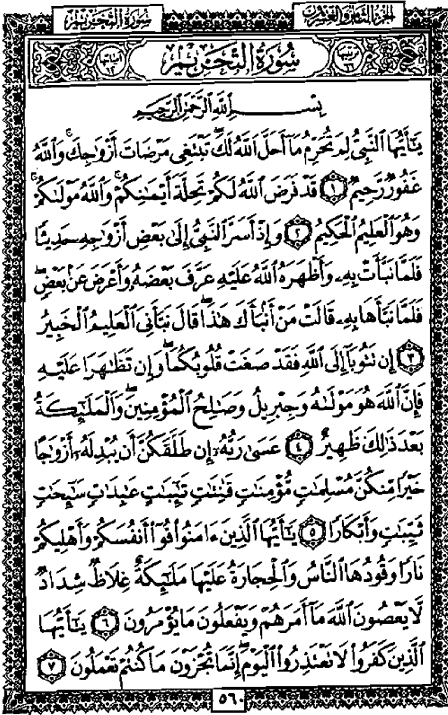 سُورَةُ التَّحْرِيمِ
الجزء الثامن والعشرون
سُورَةُ التَّحْرِيمِ
بِسْمِ اللَّهِ الرَّحْمَٰنِ الرَّحِيمِ
يَٰٓأَيُّهَا ٱلنَّبِيُّ لِمَ تُحَرِّمُ مَآ أَحَلَّ ٱللَّهُ لَكَۖ تَبْتَغِي مَرْضَاتَ أَزْوَٰجِكَۚ وَٱللَّهُ
غَفُورٌ رَّحِيمٌ ١ قَدْ فَرَضَ ٱللَّهُ لَكُمْ تَحِلَّةَ أَيْمَٰنِكُمْۚ وَٱللَّهُ مَوْلَىٰكُمْۖ
وَهُوَ ٱلْعَلِيمُ ٱلْحَكِيمُ ٢ وَإِذْ أَسَرَّ ٱلنَّبِيُّ إِلَىٰ بَعْضِ أَزْوَٰجِهِۦ حَدِيثًا
فَلَمَّا نَبَّأَتْ بِهِۦ وَأَظْهَرَهُ ٱللَّهُ عَلَيْهِ عَرَّفَ بَعْضَهُۥ وَأَعْرَضَ عَنۢ بَعْضٍۖ
فَلَمَّا نَبَّأَهَا بِهِۦ قَالَتْ مَنْ أَنۢبَأَكَ هَٰذَاۖ قَالَ نَبَّأَنِيَ ٱلْعَلِيمُ ٱلْخَبِيرُ
٣ إِن تَتُوبَآ إِلَى ٱللَّهِ فَقَدْ صَغَتْ قُلُوبُكُمَاۖ وَإِن تَظَٰهَرَا عَلَيْهِ
فَإِنَّ ٱللَّهَ هُوَ مَوْلَىٰهُ وَجِبْرِيلُ وَصَٰلِحُ ٱلْمُؤْمِنِينَۖ وَٱلْمَلَٰٓئِكَةُ
بَعْدَ ذَٰلِكَ ظَهِيرٌ ٤ عَسَىٰ رَبُّهُۥٓ إِن طَلَّقَكُنَّ أَن يُبْدِلَهُۥٓ أَزْوَٰجًا
خَيْرًا مِّنكُنَّ مُسْلِمَٰتٍ مُّؤْمِنَٰتٍ قَٰنِتَٰتٍ تَٰٓئِبَٰتٍ عَٰبِدَٰتٍ سَٰٓئِحَٰتٍ
ثَيِّبَٰتٍ وَأَبْكَارًا ٥ يَٰٓأَيُّهَا ٱلَّذِينَ ءَامَنُوا۟ قُوٓا۟ أَنفُسَكُمْ وَأَهْلِيكُمْ
نَارًا وَقُودُهَا ٱلنَّاسُ وَٱلْحِجَارَةُ عَلَيْهَا مَلَٰٓئِكَةٌ غِلَاظٌ شِدَادٌ
لَّا يَعْصُونَ ٱللَّهَ مَآ أَمَرَهُمْ وَيَفْعَلُونَ مَا يُؤْمَرُونَ ٦ يَٰٓأَيُّهَا
ٱلَّذِينَ كَفَرُوا۟ لَا تَعْتَذِرُوا۟ ٱلْيَوْمَۖ إِنَّمَا تُجْزَوْنَ مَا كُنتُمْ تَعْمَلُونَ ٧
٥٦٠